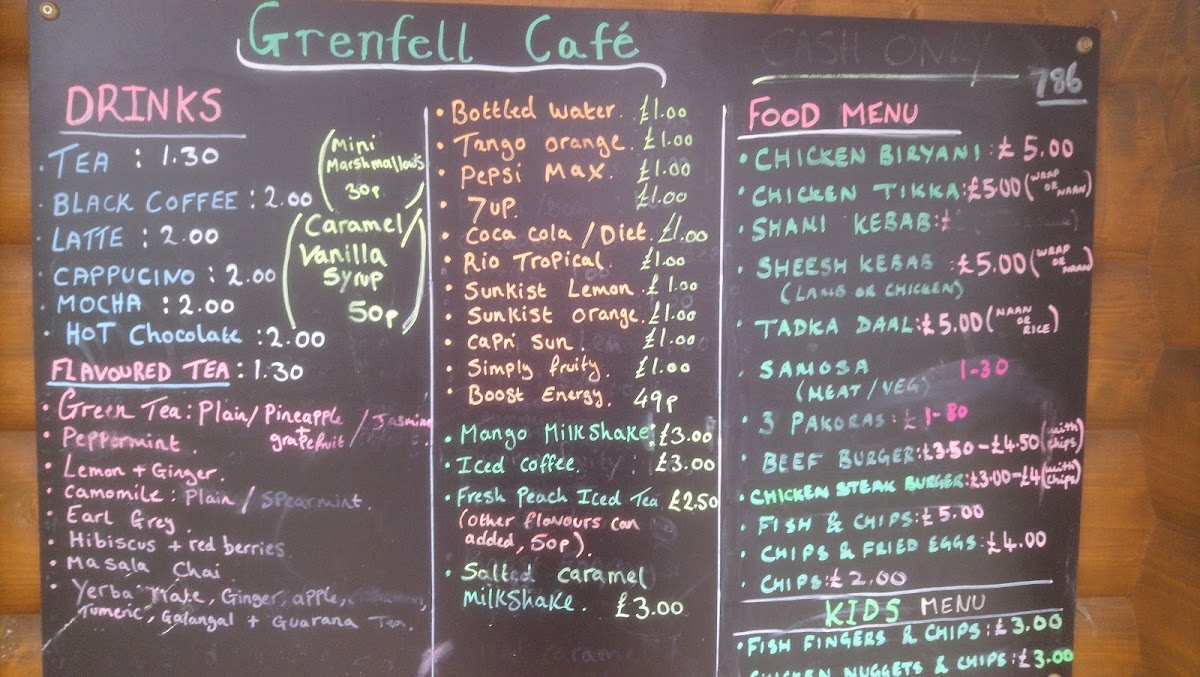 Grenfell Café
CASH ONLY
786
DRINKS
• TEA : 1.30
• BLACK COFFEE : 2.00
• LATTE : 2.00
• CAPPUCINO : 2.00
• MOCHA : 2.00
• HOT Chocolate : 2.00
(Mini
Marshmallows
30p)
(Caramel/
Vanilla
Syrup
50p)
FLAVOURED TEA : 1.30
• Green Tea : Plain / Pineapple / Jasmine
+
grapefruit /
• Peppermint.
• Lemon + Ginger.
• Camomile : Plain / Spearmint.
• Earl Grey.
• Hibiscus + red berries.
• Masala Chai.
• Yerba Mate, Ginger, apple,
Tumeric, Galangal + Guarana Tea.
• Bottled water. £1.00
• Tango orange. £1.00
• Pepsi Max. £1.00
• 7up. £1.00
• Coca cola / Diet. £1.00
• Rio Tropical. £1.00
• Sunkist Lemon £1.00
• Sunkist orange. £1.00
• Capri Sun. £1.00
• Simply fruity. £1.00
• Boost Energy. 49p
• Mango Milkshake: £3.00
• Iced coffee. : £3.00
• Fresh Peach Iced Tea £2.50
(other flavours can
added, 50p).
• Salted caramel
milkshake. £3.00
FOOD MENU
• CHICKEN BIRYANI : £5.00
• CHICKEN TIKKA : £5.00 (WRAP OR NAAN)
• SHAMI KEBAB : £
• SHEESH KEBAB : £5.00 (WRAP OR NAAN)
(LAMB OR CHICKEN)
• TADKA DAAL : £5.00 (NAAN OR RICE)
• SAMOSA 1-30
(MEAT / VEG)
• 3 PAKORAS : £1-80
• BEEF BURGER : £3.50 - £4.50 (with chips)
• CHICKEN STEAK BURGER : £3.00 - £4 (with chips)
• FISH & CHIPS : £5.00
• CHIPS & FRIED EGGS : £4.00
• CHIPS : £2.00
KIDS MENU
• FISH FINGERS & CHIPS : £3.00
CHICKEN NUGGETS & CHIPS : £3.00